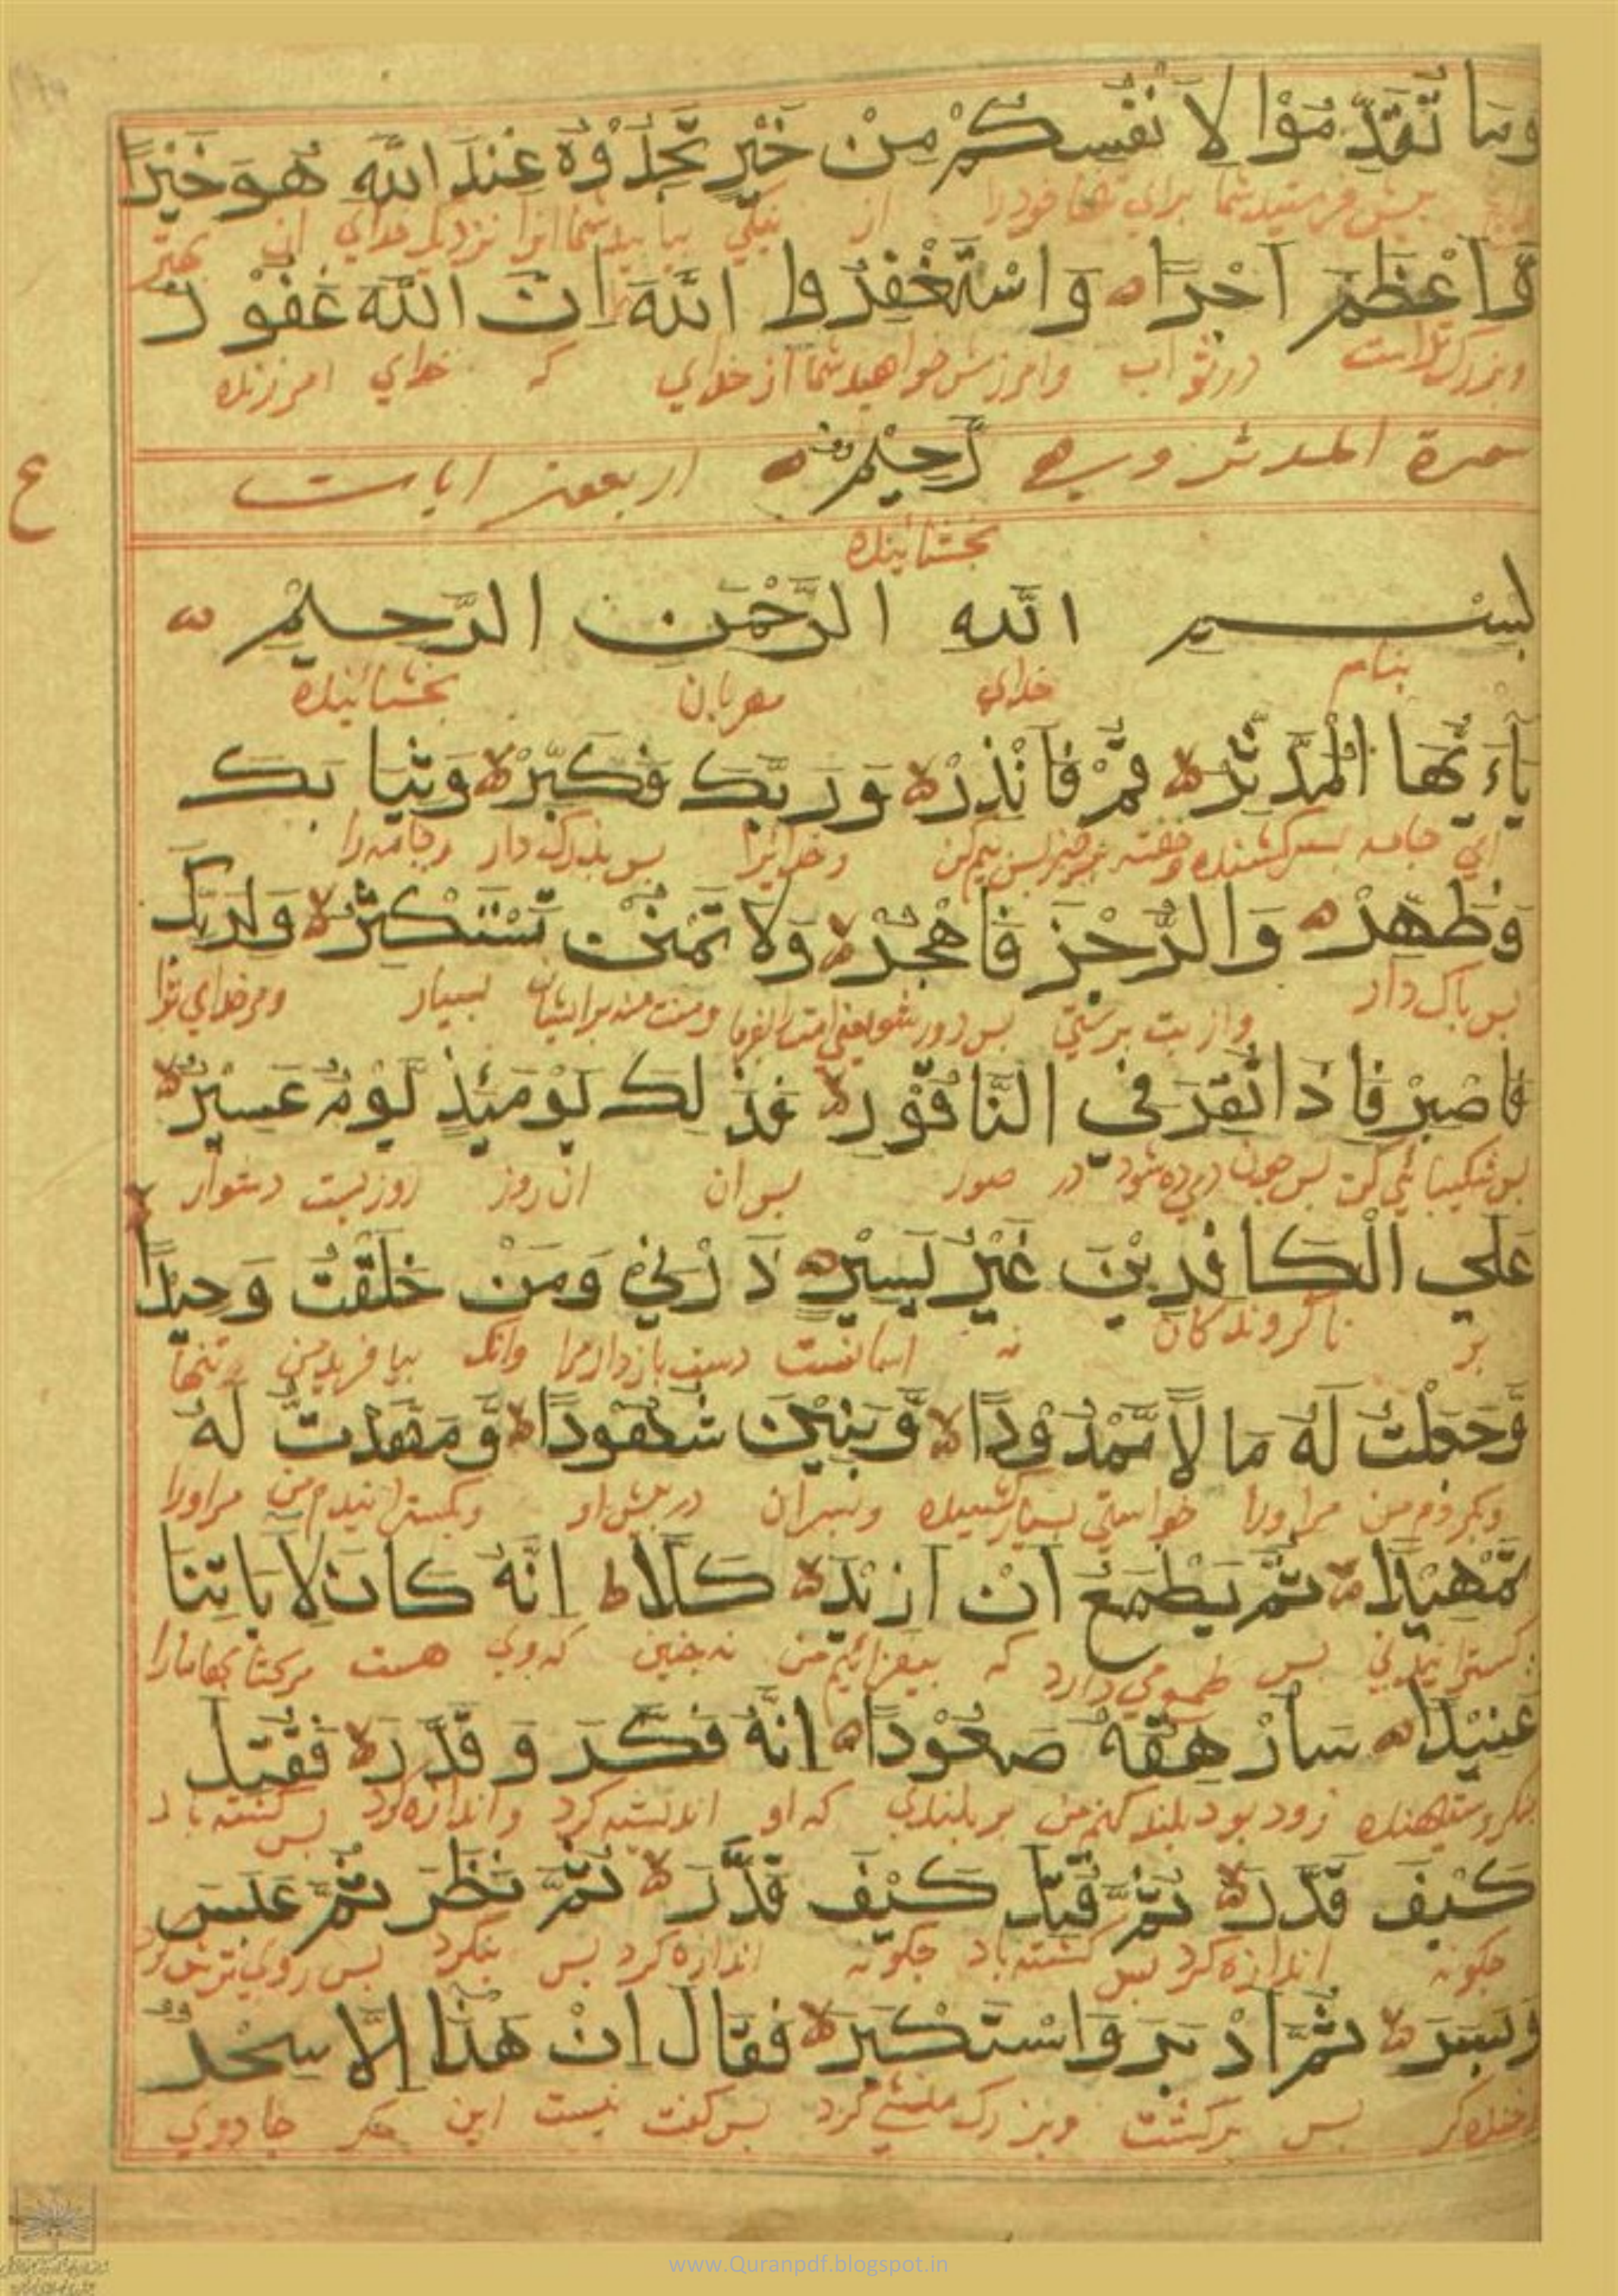 وَمَا تُقَدِّمُوْا لِاَنْفُسِكُمْ مِنْ خَيْرٍ تَجِدُوْهُ عِنْدَ اللّٰهِ هُوَ خَيْرًا
پیش فرستید شما برای تنها خود را از نیکی بیابید شما انرا نزدیک خدای ان بهتر
وَّاَعْظَمَ اَجْرًا وَاسْتَغْفِرُوا اللّٰهَ اِنَّ اللّٰهَ غَفُوْرٌ
وبزرک تر است در ثواب وامرزش خواهید شما از خدای که خدای امرزنده
سورة المدثر وهي رَحِيْمٌ اربعون ايات
ع
بخشاینده
بِسْمِ اللّٰهِ الرَّحْمٰنِ الرَّحِيْمِ
بنام خدای مهربان بخشاینده
يٰاَيُّهَا الْمُدَّثِّرُ قُمْ فَاَنْذِرْ وَرَبَّكَ فَكَبِّرْ وَثِيَابَكَ
ای جامه بسر کشنده وخفته برخیز پس بیم کن وخدایرا پس بزرک دار وجامه را
فَطَهِّرْ وَالرُّجْزَ فَاهْجُرْ وَلَا تَمْنُنْ تَسْتَكْثِرُ وَلِرَبِّكَ
پس پاک دار واز بت پرستی پس دور شو یعنی ومنت منه برایشان بسیار ومر خدای ترا
فَاصْبِرْ فَاِذَا نُقِرَ فِي النَّاقُوْرِ فَذٰلِكَ يَوْمَئِذٍ يَوْمٌ عَسِيْرٌ
پس شکیبائی کن پس چون دمیده شود در صور پس ان ان روز روزیست دشوار
عَلَي الْكَافِرِيْنَ غَيْرُ يَسِيْرٍ ذَرْنِيْ وَمَنْ خَلَقْتُ وَحِيْدًا
بر ناکروندکان نه اسانست دست بازدار مرا وانک بیافریدمش تنها
وَّجَعَلْتُ لَهُ مَالًا مَّمْدُوْدًا وَّبَنِيْنَ شُهُوْدًا وَّمَهَّدْتُّ لَهُ
وکردم من مر اورا خواستی بسیار کشیده وپسران در پیش او وبکسترانیدم من مر اورا
تَمْهِيْدًا ثُمَّ يَطْمَعُ اَنْ اَزِيْدَ كَلَّا اِنَّهُ كَانَ لِاٰيَاتِنَا
کسترانیدنی پس طمع می دارد که بیفزایم من نه چنین که وی هست مر کتابهامارا
عَنِيْدًا سَاُرْهِقُهُ صَعُوْدًا اِنَّهُ فَكَّرَ وَقَدَّرَ فَقُتِلَ
منکر وستیهنده زود بود بلند کنم من بر بلندی که او اندیشه کرد واندازه کرد پس کشته باد
كَيْفَ قَدَّرَ ثُمَّ قُتِلَ كَيْفَ قَدَّرَ ثُمَّ نَظَرَ ثُمَّ عَبَسَ
چکونه اندازه کرد پس کشته باد چکونه اندازه کرد پس بنکرد پس روی ترش کرد
وَبَسَرَ ثُمَّ اَدْبَرَ وَاسْتَكْبَرَ فَقَالَ اِنْ هٰذَا اِلَّا سِحْرٌ
پس برکشت وبزرک منشی کرد پس کفت نیست این مکر جادوی
www.Quranpdf.blogspot.in